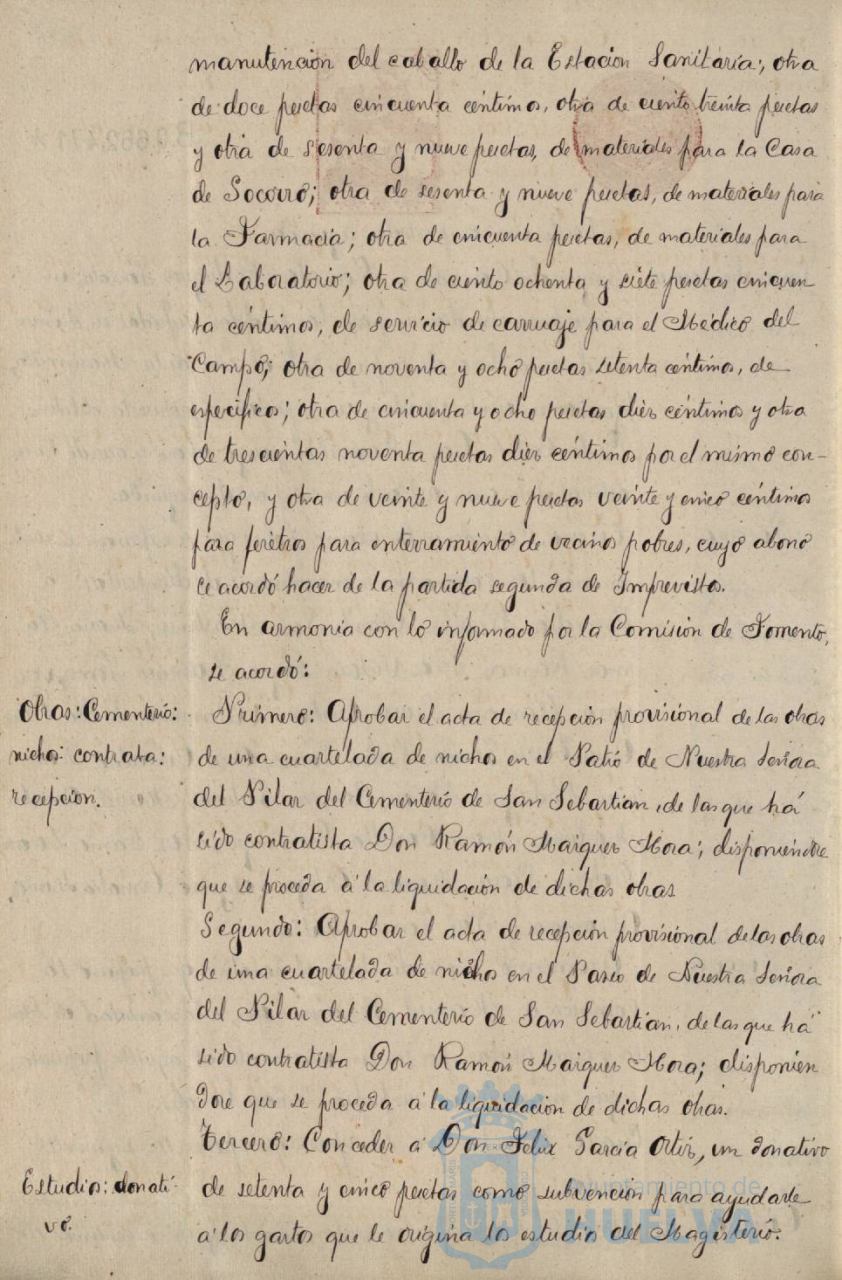 manutención del caballo de la Estacion Sanitaria; otra
de doce pesetas cincuenta céntimos, otra de ciento treinta pesetas
y otra de sesenta y nueve pesetas, de materiales para la Casa
de Socorro; otra de sesenta y nueve pesetas, de materiales para
la Farmacia; otra de cincuenta pesetas, de materiales para
el Laboratorio; otra de ciento ochenta y siete pesetas cincuen
ta céntimos, de servicio de carruaje para el Médico del
Campo; otra de noventa y ocho pesetas setenta céntimos, de
especificos; otra de cincuenta y ocho pesetas diez céntimos y otra
de trescientas noventa pesetas diez céntimos por el mismo con-
cepto, y otra de veinte y nueve pesetas veinte y cinco céntimos
para feretros para enterramiento de vecinos pobres, cuyo abono
se acordó hacer de la partida segunda de Imprevistos.
En armonia con lo informado por la Comisión de Fomento,
se acordó:
Obras: Cementerio:
nichos: contrata:
recepcion.
Primero: Aprobar el acta de recepción provisional de las obras
de una cuartelada de nichos en el Patio de Nuestra Señora
del Pilar del Cementerio de San Sebastian, de las que há
sido contratista Don Ramón Maiquez Mora; disponiendose
que se proceda á la liquidación de dichas obras
Segundo: Aprobar el acta de recepción provisional de las obras
de una cuartelada de nichos en el Paseo de Nuestra Señora
del Pilar del Cementerio de San Sebastian, de las que há
sido contratista Don Ramón Maiquez Mora; disponien
dose que se proceda á la liquidacion de dichas obras.
Estudios: donati-
vo.
Tercero: Conceder á Don Felix Garcia Ortiz, un donativo
de setenta y cinco pesetas como subvención para ayudarle
a los gastos que le origina los estudios del Magisterio.
Ayuntamiento de
HUELVA